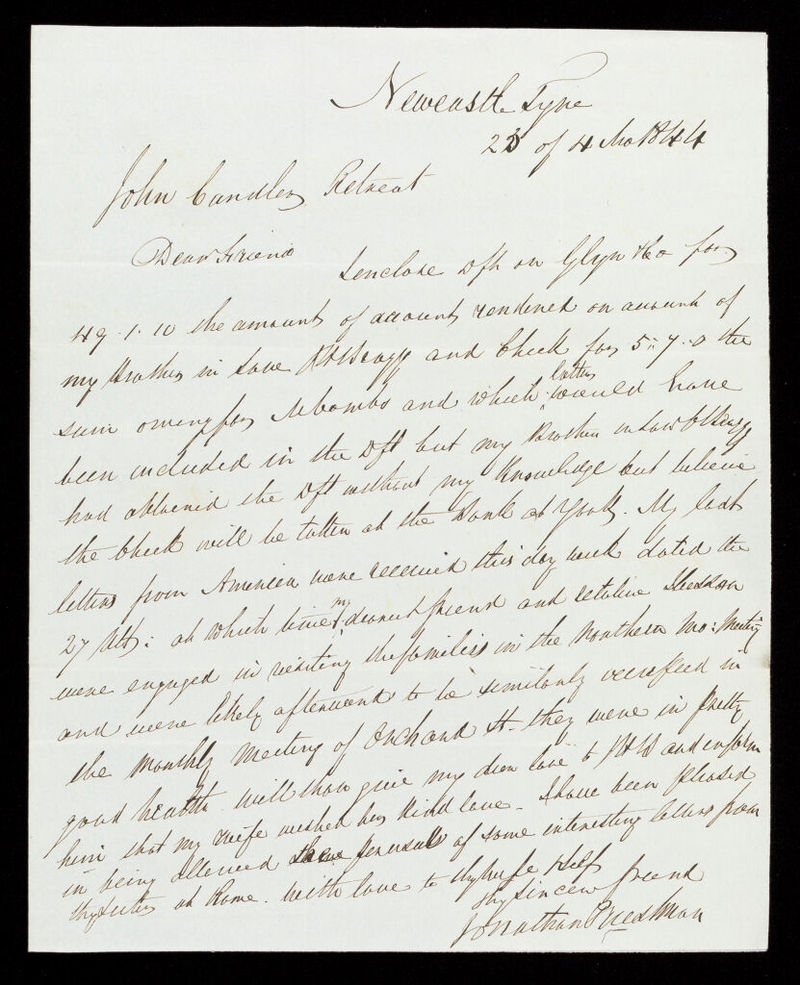 Newcastle Tyne
23 of 4 Mo 1844
John Candler, Retreat
Dear Friend
I enclose Dft on Glyn & Co for
49.1.10 the amount of account rendered on account of
my Brother in Law and Check for 5:7.0 the
sum owing for and which latter would have
been included in the Dft but my Brother in Law
had obtained the Dft without my Knowledge but believe
the Check will be taken at the Bank at York. My last
letters from America were received this day week dated the
27 Ult: at which time my dearest friend and relative
were engaged in visiting the families in the Northern Mo: Meeting
and were likely afterward to be similarly occupied in
the Monthly Meeting of Orchard St- they were in pretty
good health. will thou give my dear love to and inform
him that my wife wished her kind love - I have been pleased
in being allowed the perusal of some interesting letters from
thy sister at Rome. with love to thy wife & self
thy sincere friend
Jonathan Priestman